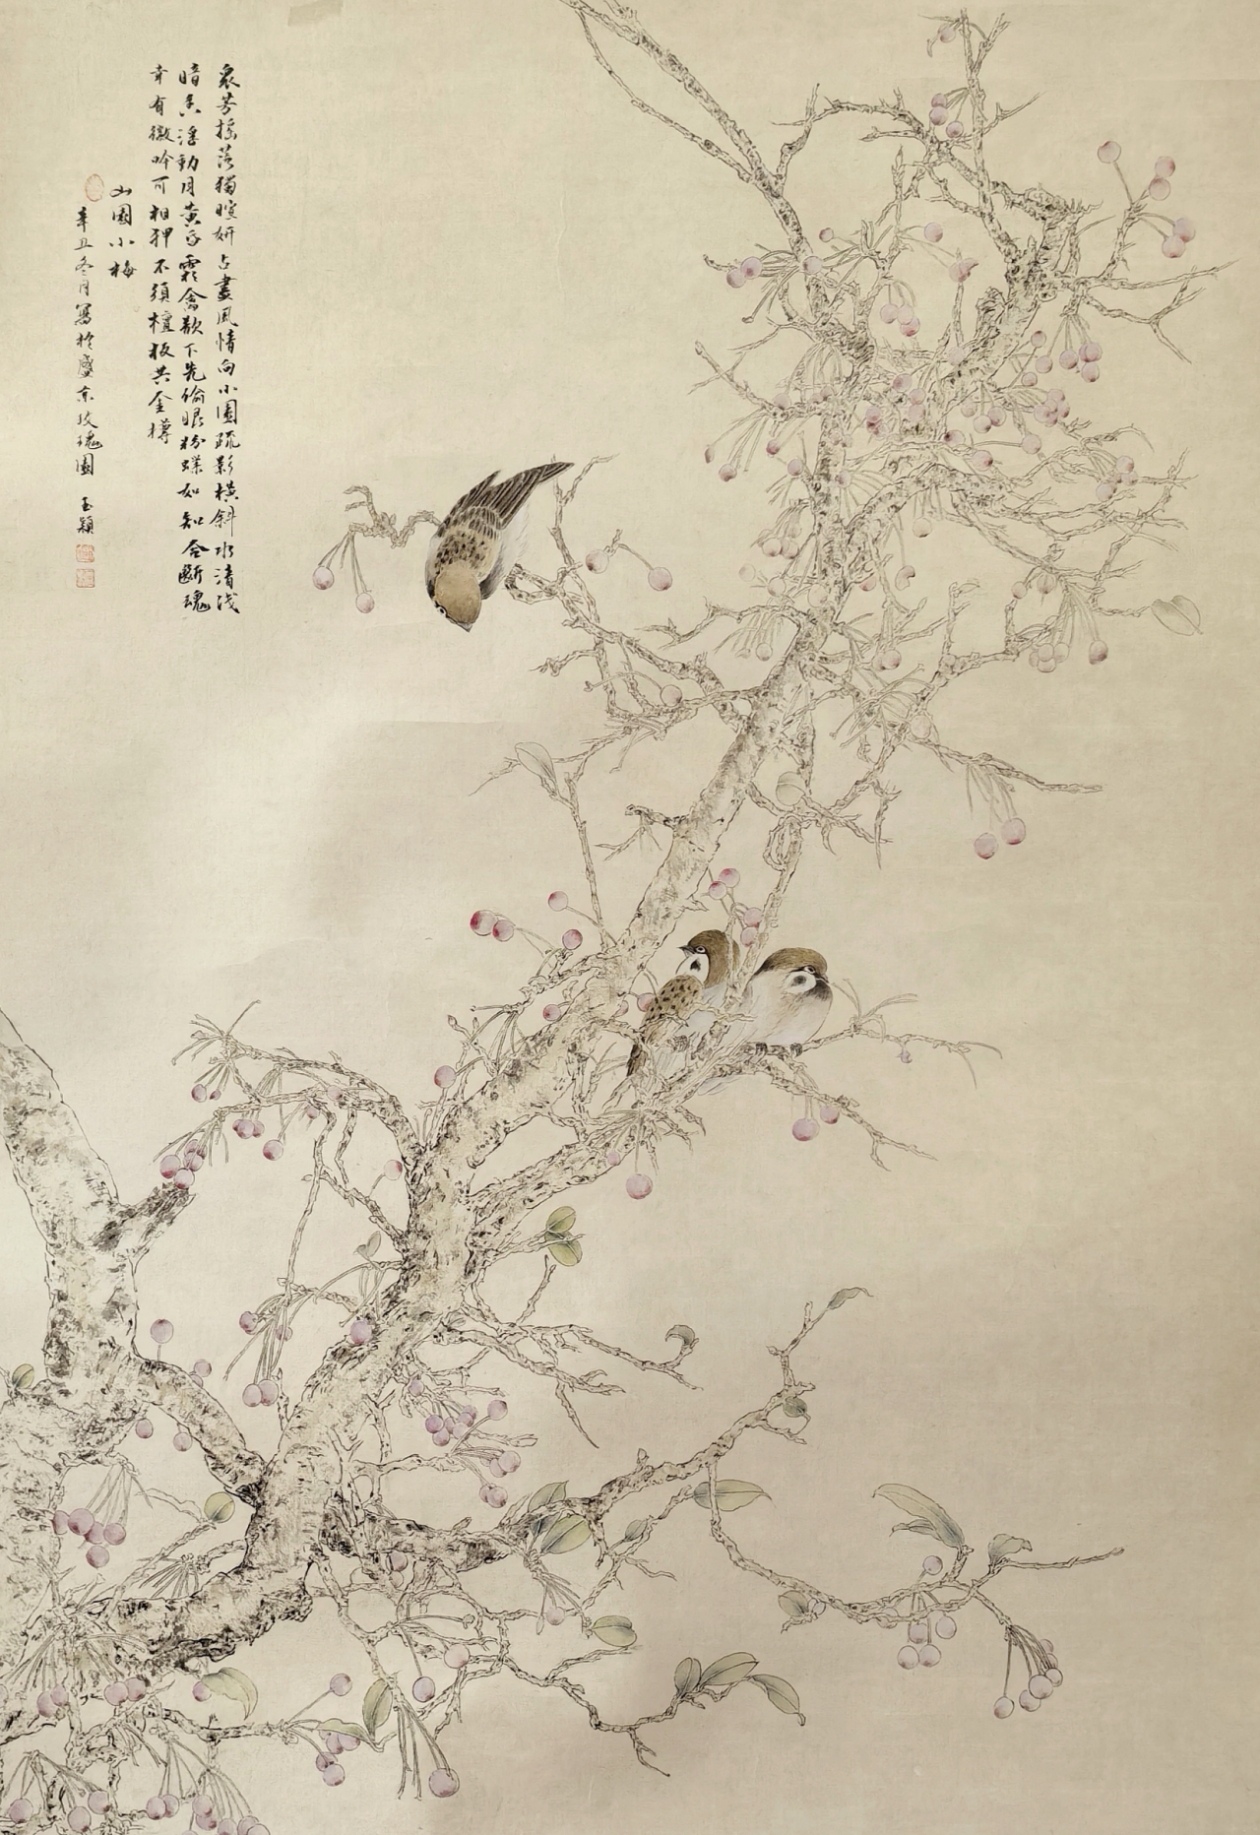 衆芳搖落獨暄妍占盡風情向小園疏影橫斜水清淺
暗香浮動月黃昏霜禽欲下先偷眼粉蝶如知合斷魂
幸有微吟可相狎不須檀板共金樽
山園小梅
辛丑冬月寫於盛京玫瑰園 玉穎